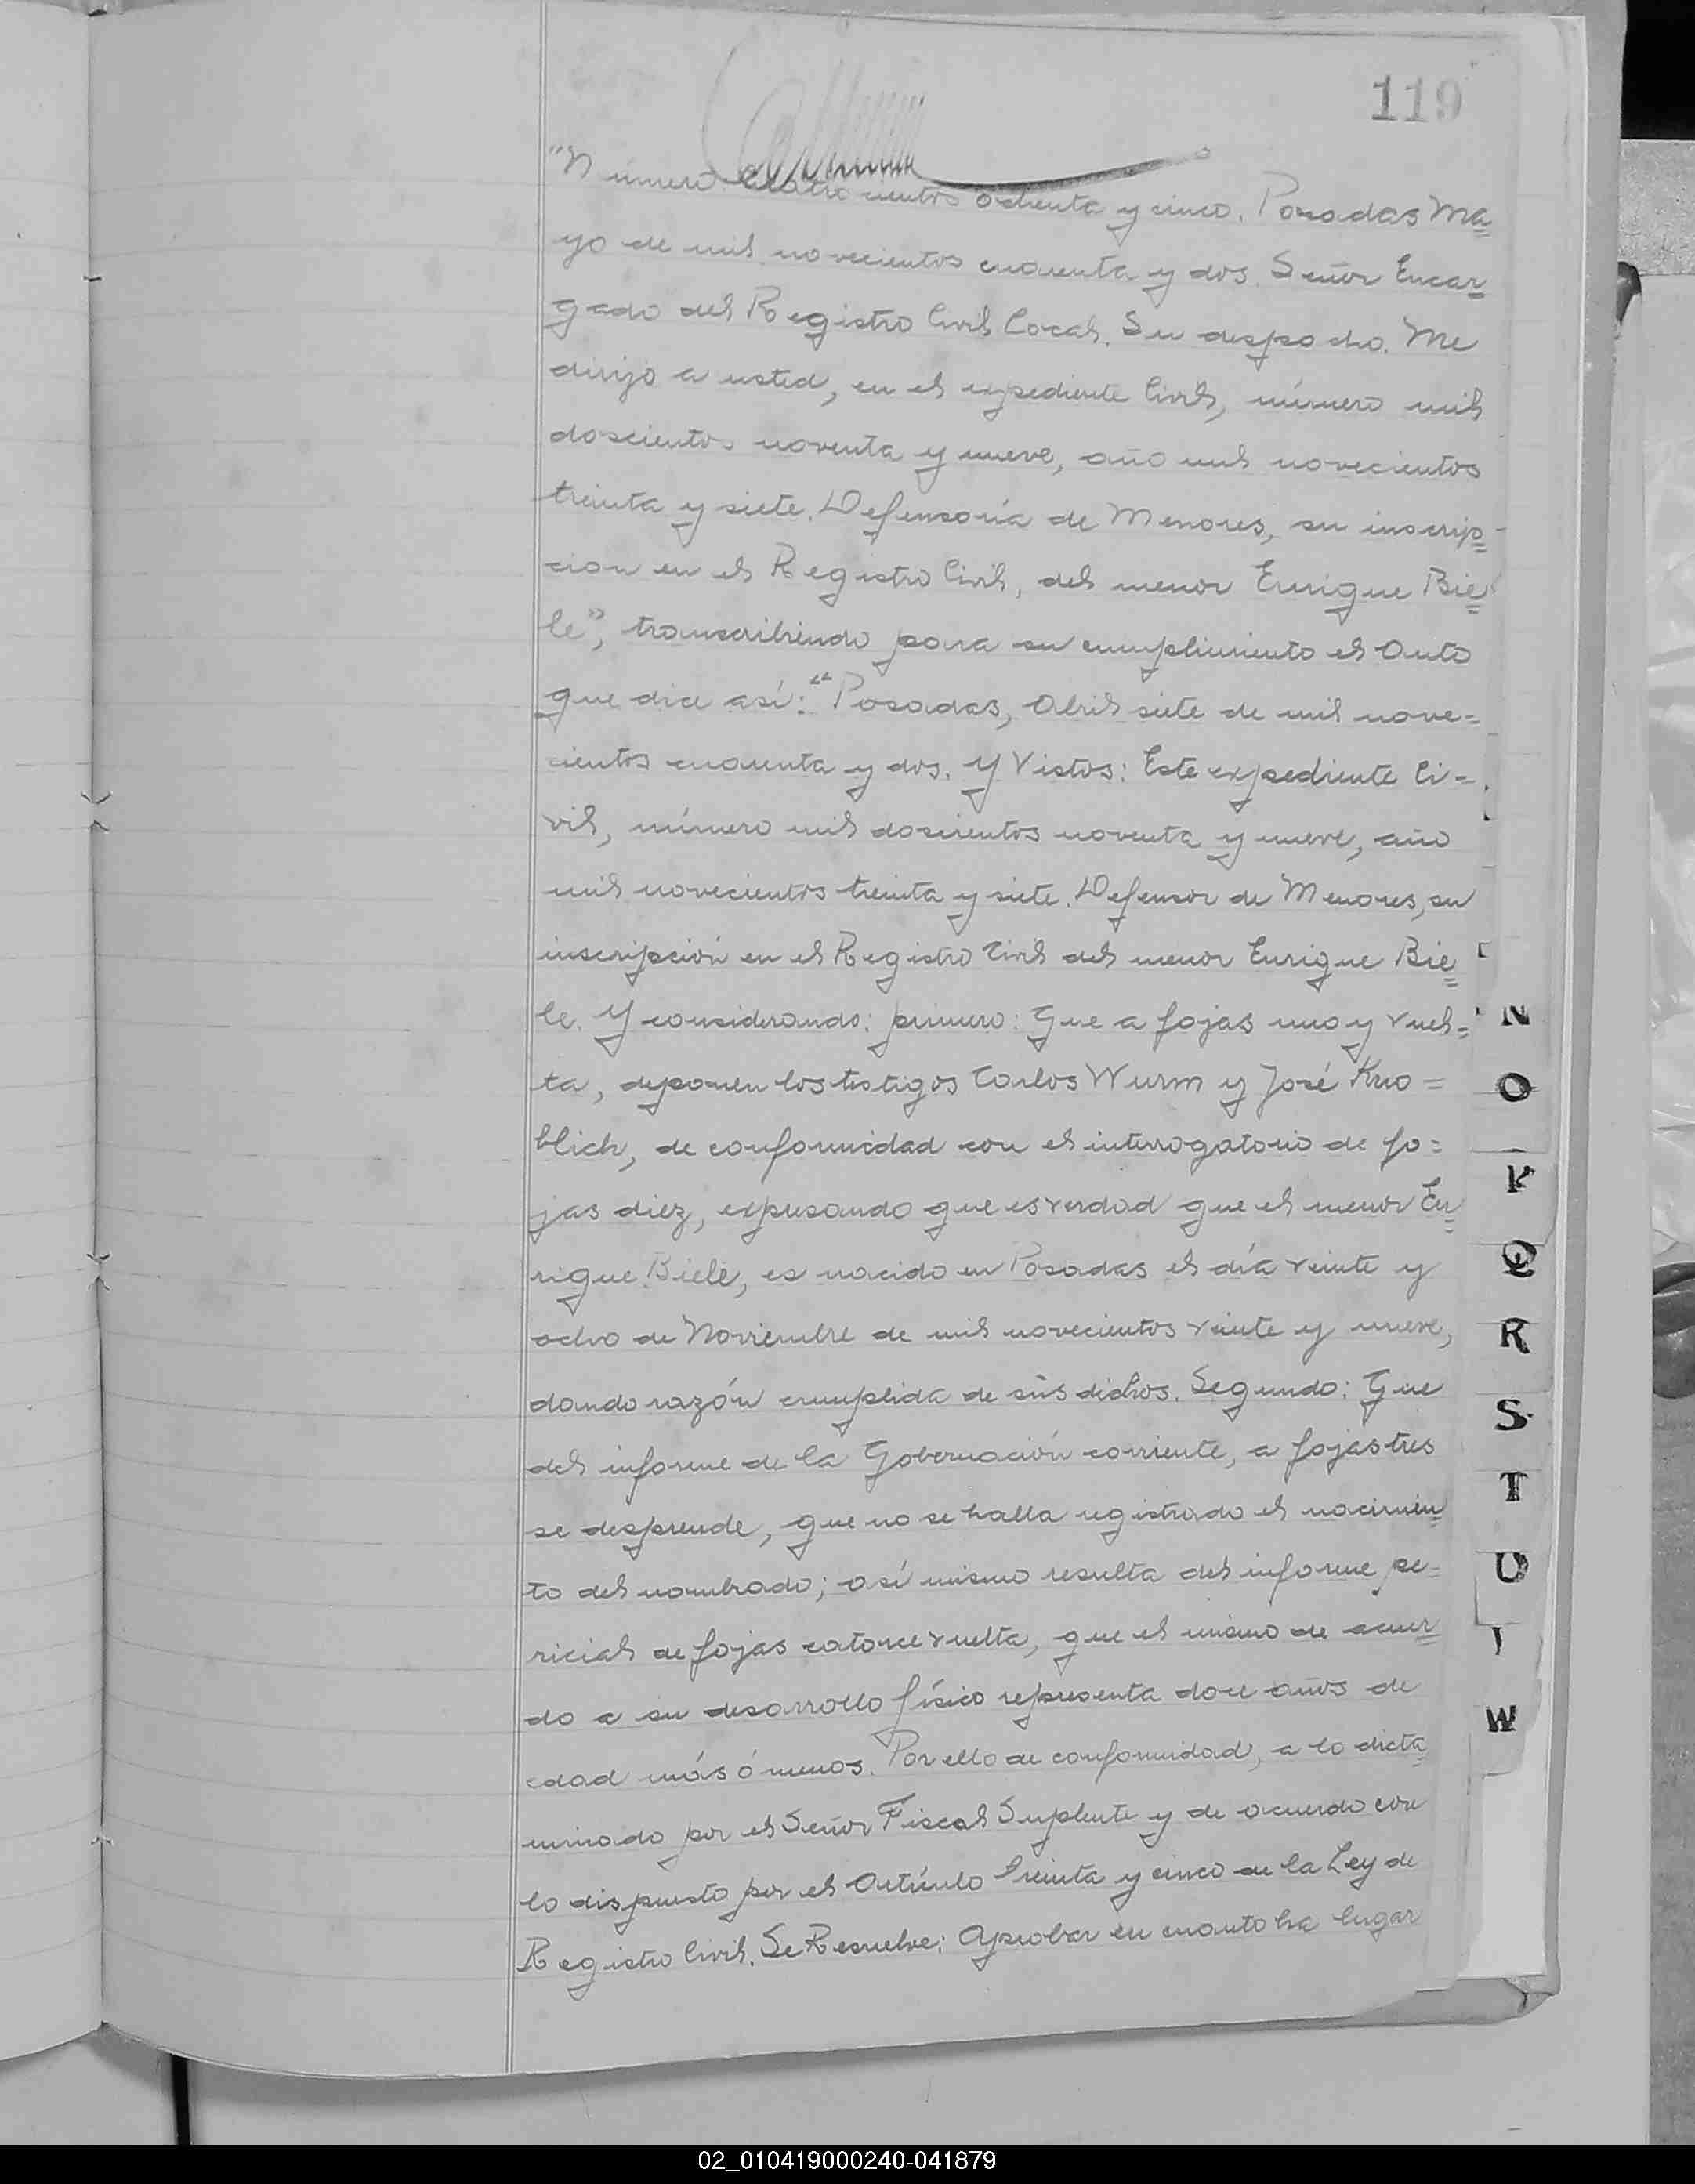 119
"Número cuatrocientos ochenta y cinco. Posadas Ma=
yo de mil novecientos cuarenta y dos. Señor Encar=
gado del Registro Civil Local. Su despacho. Me
dirijo a usted, en el expediente Civil, número mil
doscientos noventa y nueve, año mil novecientos
treinta y siete. Defensoría de Menores, su inscrip=
cion en el Registro Civil, del menor Enrique Bie=
le", transcribiendo para su cumplimiento el Auto
que dice así: "Posadas, Abril siete de mil nove=
cientos cuarenta y dos. Y Vistos: Este expediente Ci=
vil, número mil doscientos noventa y nueve, año
mil novecientos treinta y siete. Defensor de Menores, su
inscripción en el Registro Civil del menor Enrique Bie=
le. Y considerando: primero: Que a fojas uno y vuel=
ta, deponen los testigos Carlos Wurm y José Kno=
blich, de conformidad con el interrogatorio de fo=
jas diez, expresando que es verdad que el menor En=
rique Biele, es nacido en Posadas el día veinte y
ocho de Noviembre de mil novecientos veinte y nueve,
dando razón cumplida de sus dichos. Segundo: Que
del informe de la Gobernación corriente, a fojas tres
se desprende, que no se halla registrado el nacimien=
to del nombrado; así mismo resulta del informe pe=
ricial de fojas catorce vuelta, que el mismo de acuer=
do a su desarrollo físico representa doce años de
edad más ó menos. Por ello de conformidad, a lo dicta=
minado por el Señor Fiscal Suplente y de acuerdo con
lo dispuesto por el Artículo treinta y cinco de la Ley de
Registro Civil. Se Resuelve: Aprobar en cuanto ha lugar
N
O
P
Q
R
S
T
U
W
02_010419000240-041879